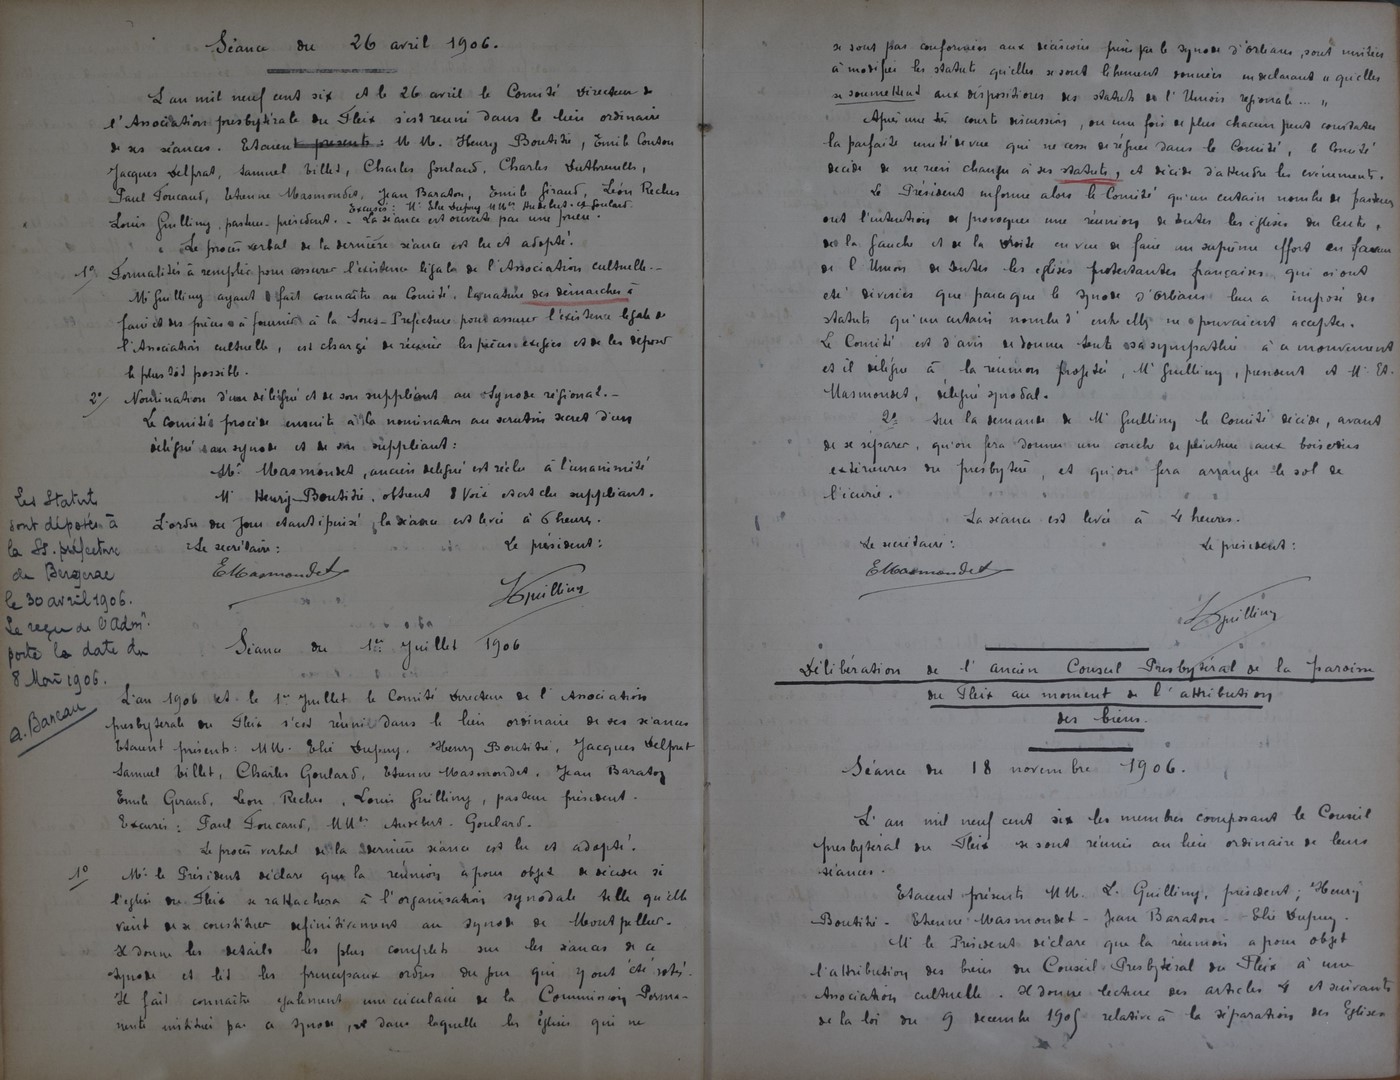 Séance du 26 avril 1906.
L'an mil neuf cent six et le 26 avril le Comité Directeur de
l'Association presbytérale du Fleix s'est réuni dans le lieu ordinaire
de ses séances. Etaient présents : M M. Henry Boutitié, Emile Couson
Jacques Delprat, Samuel Villet, Charles Goulard, Charles Duthreuilh,
Paul Foucaud, Etienne Masmondet, Jean Baraton, Emile Giraud, Léon Reclus
Excusés : Mr Elie Dupuy MMes Audebert et Goulard.
Louis Guilliny, pasteur, président. - La séance est ouverte par une prière.
Le procès verbal de la dernière séance est lu et adopté.
1º/ Formalités à remplir pour assurer l'existence légale de l'Association cultuelle. -
Mr Guilliny ayant fait connaître au Comité, la nature des démarches à
faire et des pièces à fournir à la Sous-Préfecture pour assurer l'existence légale de
l'Association cultuelle, est chargé de réunir les pièces exigées et de les déposer
le plus tôt possible.
2º/ Nomination d'un délégué et de son suppléant au Synode régional. -
Le Comité procède ensuite à la nomination au scrutin secret d'un
délégué au synode et de son suppléant :
Mr. Masmondet, ancien délégué est réélu à l'unanimité
Mr Henry Boutitié, obtient 8 voix et est élu suppléant.
L'ordre du jour étant épuisé, la séance est levée à 6 heures.
Le secrétaire : Le président :
EMasmondet LGuilliny
Les Statuts
sont déposés à
la SS. préfecture
de Bergerac
le 30 avril 1906.
Le reçu de l'Admn.
porte la date du
8 Mai 1906.
a. Bareau
Séance du 1er Juillet 1906
L'an 1906 et le 1er Juillet le Comité Directeur de l'Association
presbytérale du Fleix s'est réuni dans le lieu ordinaire de ses séances
Etaient présents : MM. Elie Dupuy, Henry Boutitié, Jacques Delprat
Samuel Villet, Charles Goulard, Etienne Masmondet, Jean Baraton
Emile Giraud, Léon Reclus, Louis Guilliny, pasteur président.
Excusés : Paul Foucaud, MMes Audebert - Goulard.
Le procès verbal de la dernière séance est lu et adopté.
1º Mr le Président déclare que la réunion a pour objet de décider si
l'église du Fleix se rattachera à l'organisation synodale telle qu'elle
vient de se constituer définitivement au synode de Montpellier.
Il donne les détails les plus complets sur les séances de ce
synode et lit les principaux ordres du jour qui y ont été votés.
Il fait connaître également une circulaire de la Commission Perma-
nente instituée par ce synode, et dans laquelle les églises qui ne
se sont pas conformées aux décisions prises par le synode d'Orléans, sont invitées
à modifier les statuts qu'elles se sont librement données en déclarant "qu'elles
se soumettent aux dispositions des statuts de l'Union régionale... "
Après une très courte discussion, où une fois de plus chacun peut constater
la parfaite unité de vue qui ne cesse de régner dans le Comité, le Comité
décide de ne rien changer à ses statuts, et décide d'attendre les événements.
Le Président informe alors le Comité qu'un certain nombre de pasteurs
ont l'intention de provoquer une réunion de toutes les églises du Centre,
de la Gauche et de la Droite en vue de faire un suprême effort en faveur
de l'Union de toutes les églises protestantes françaises, qui n'ont
été divisées que parce que le Synode d'Orléans leur a imposé des
statuts qu'un certain nombre d'entr'elles ne pouvaient accepter.
Le Comité est d'avis de donner toute sa sympathie à ce mouvement
et il délègue à la réunion projetée, Mr Guilliny, président et Mr Et.
Masmondet, délégué synodal.
2º Sur la demande de Mr Guilliny le Comité décide, avant
de se séparer, qu'on fera donner une couche de peinture aux boiseries
extérieures du presbytère, et qu'on fera arranger le sol de
l'écurie.
La séance est levée à 4 heures.
Le secrétaire : Le président :
EMasmondet LGuilliny
Délibération de l'ancien Conseil Presbytéral de la paroisse
du Fleix au moment de l'attribution
des biens.
Séance du 18 novembre 1906.
L'an mil neuf cent six les membres composant le Conseil
presbytéral du Fleix se sont réunis au lieu ordinaire de leurs
séances.
Etaient présents MM. L. Guilliny, président ; Henry
Boutitié - Etienne Masmondet - Jean Baraton - Elie Dupuy.
M le Président déclare que la réunion a pour objet
l'attribution des biens du Conseil Presbytéral du Fleix à une
Association cultuelle. Il donne lecture des articles 4 et suivants
de la loi du 9 décembre 1905 relative à la séparation des Eglises